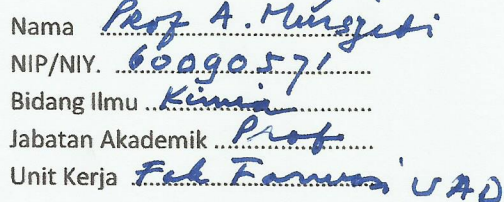 Nama Prof A. Mursyidi
NIP/NIY. 60090571
Bidang Ilmu Kimia
Jabatan Akademik Prof
Unit Kerja Fak Farmasi UAD